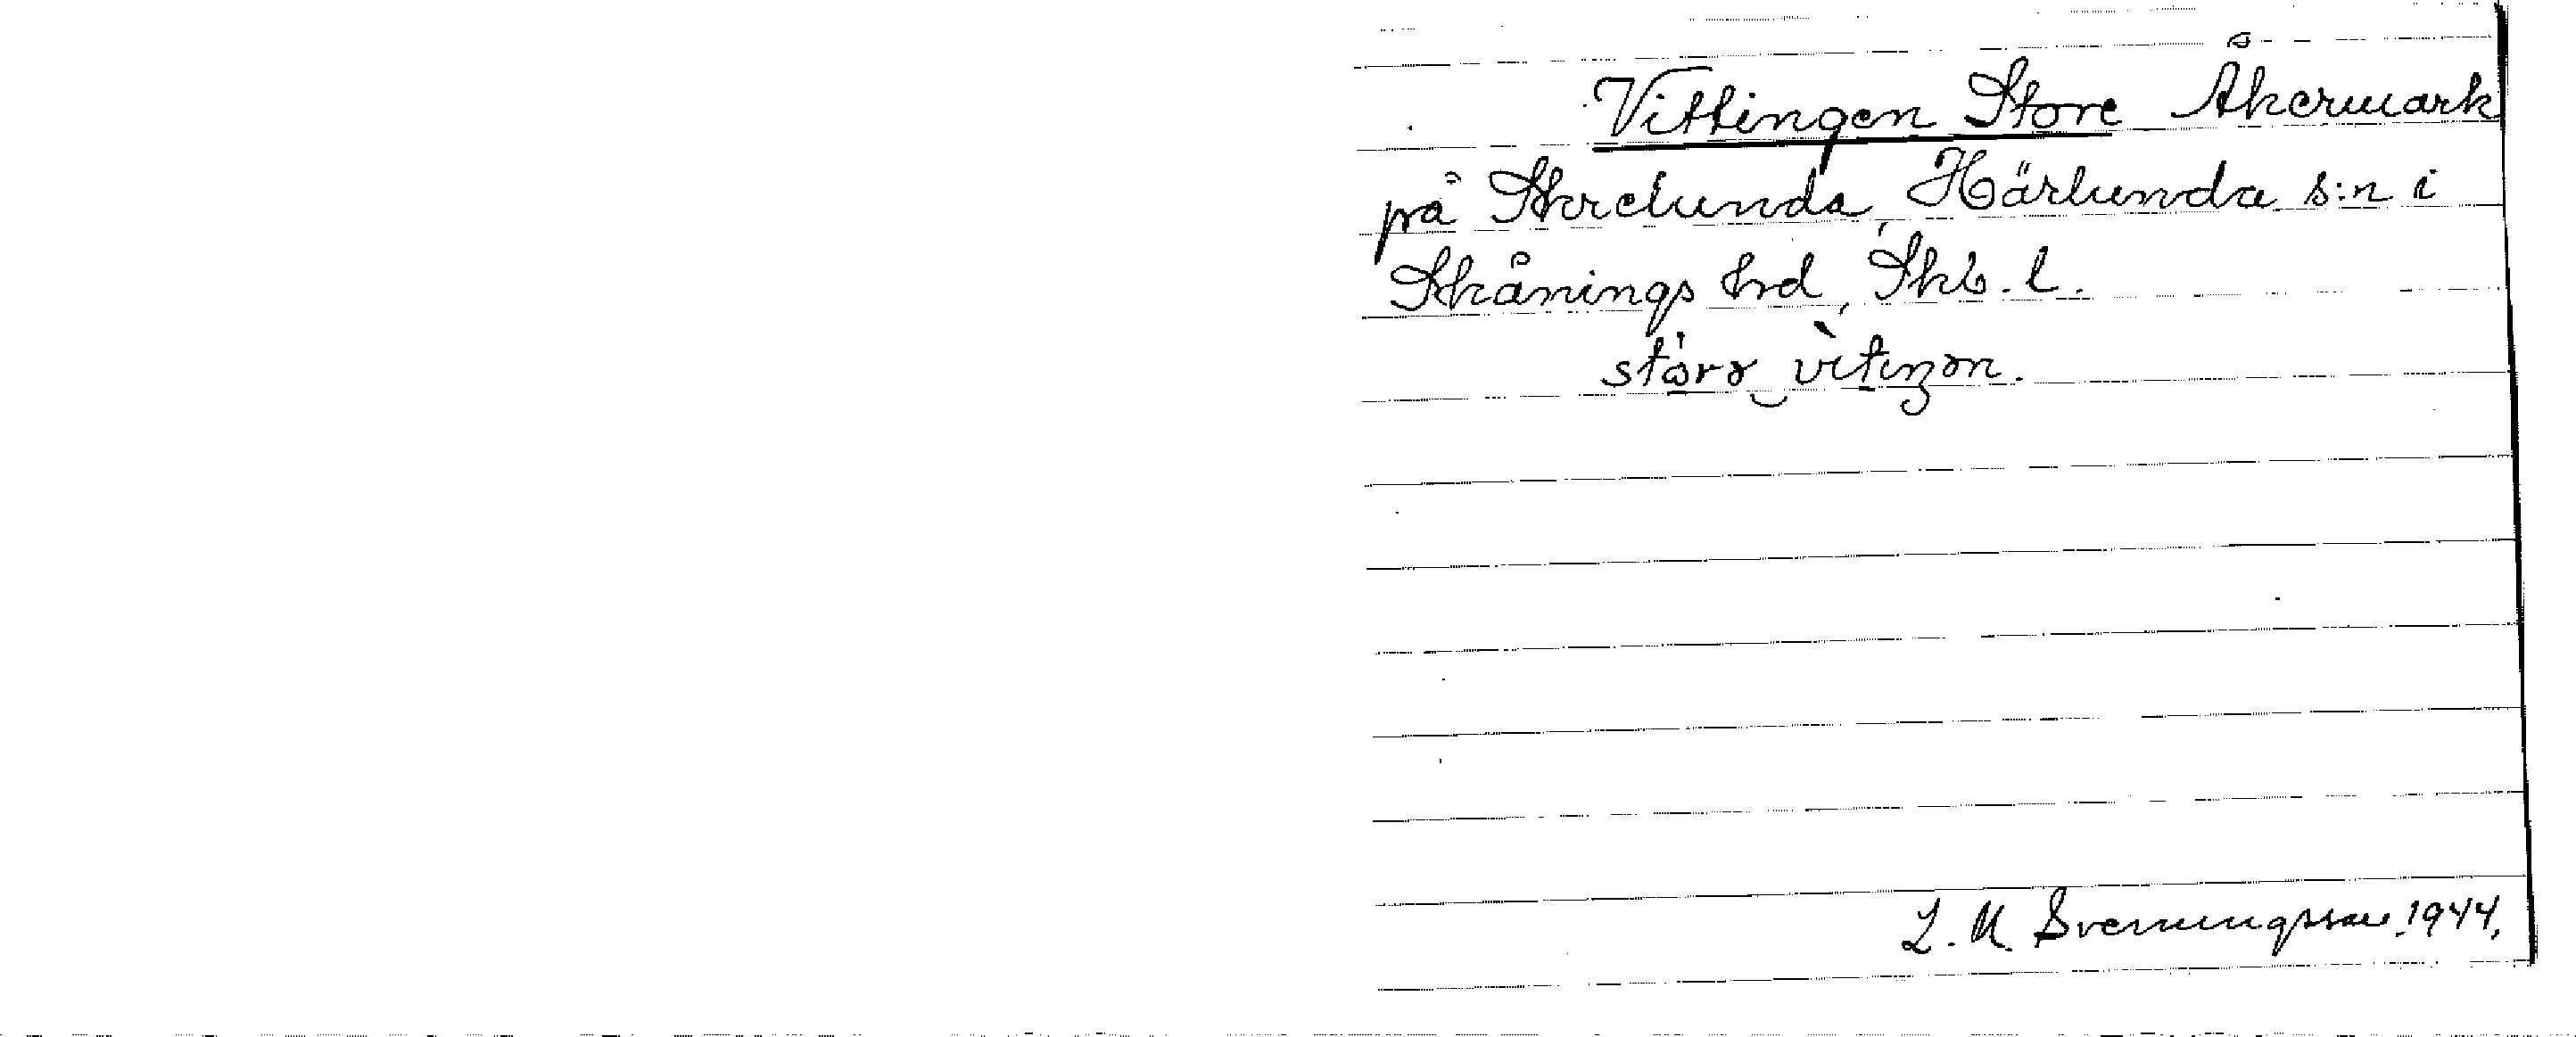 Vittingen Store Åkermark
på Skrelunda, Härlunda s:n i
Skånings hrd, Skb. l.
L. M. Svenningsson 1944.